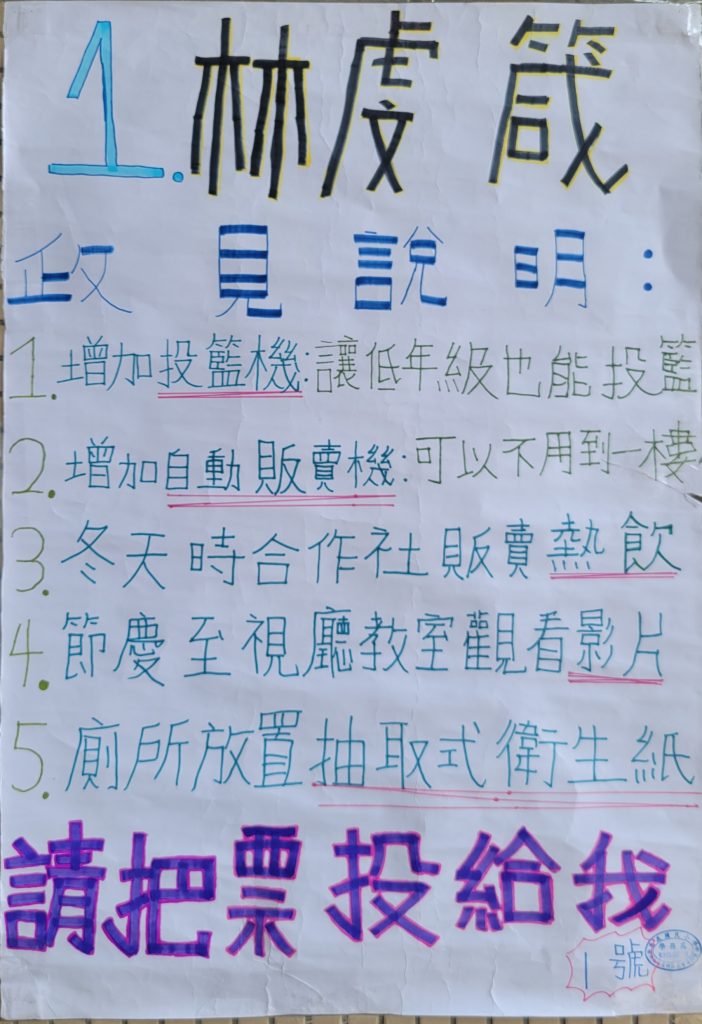 1.林虔箴
政見說明:
1.增加投籃機:讓低年級也能投籃
2.增加自動販賣機:可以不用到一樓
3.冬天時合作社販賣熱飲
4.節慶至視廳教室觀看影片
5.廁所放置抽取式衛生紙
請把票投給我
1號